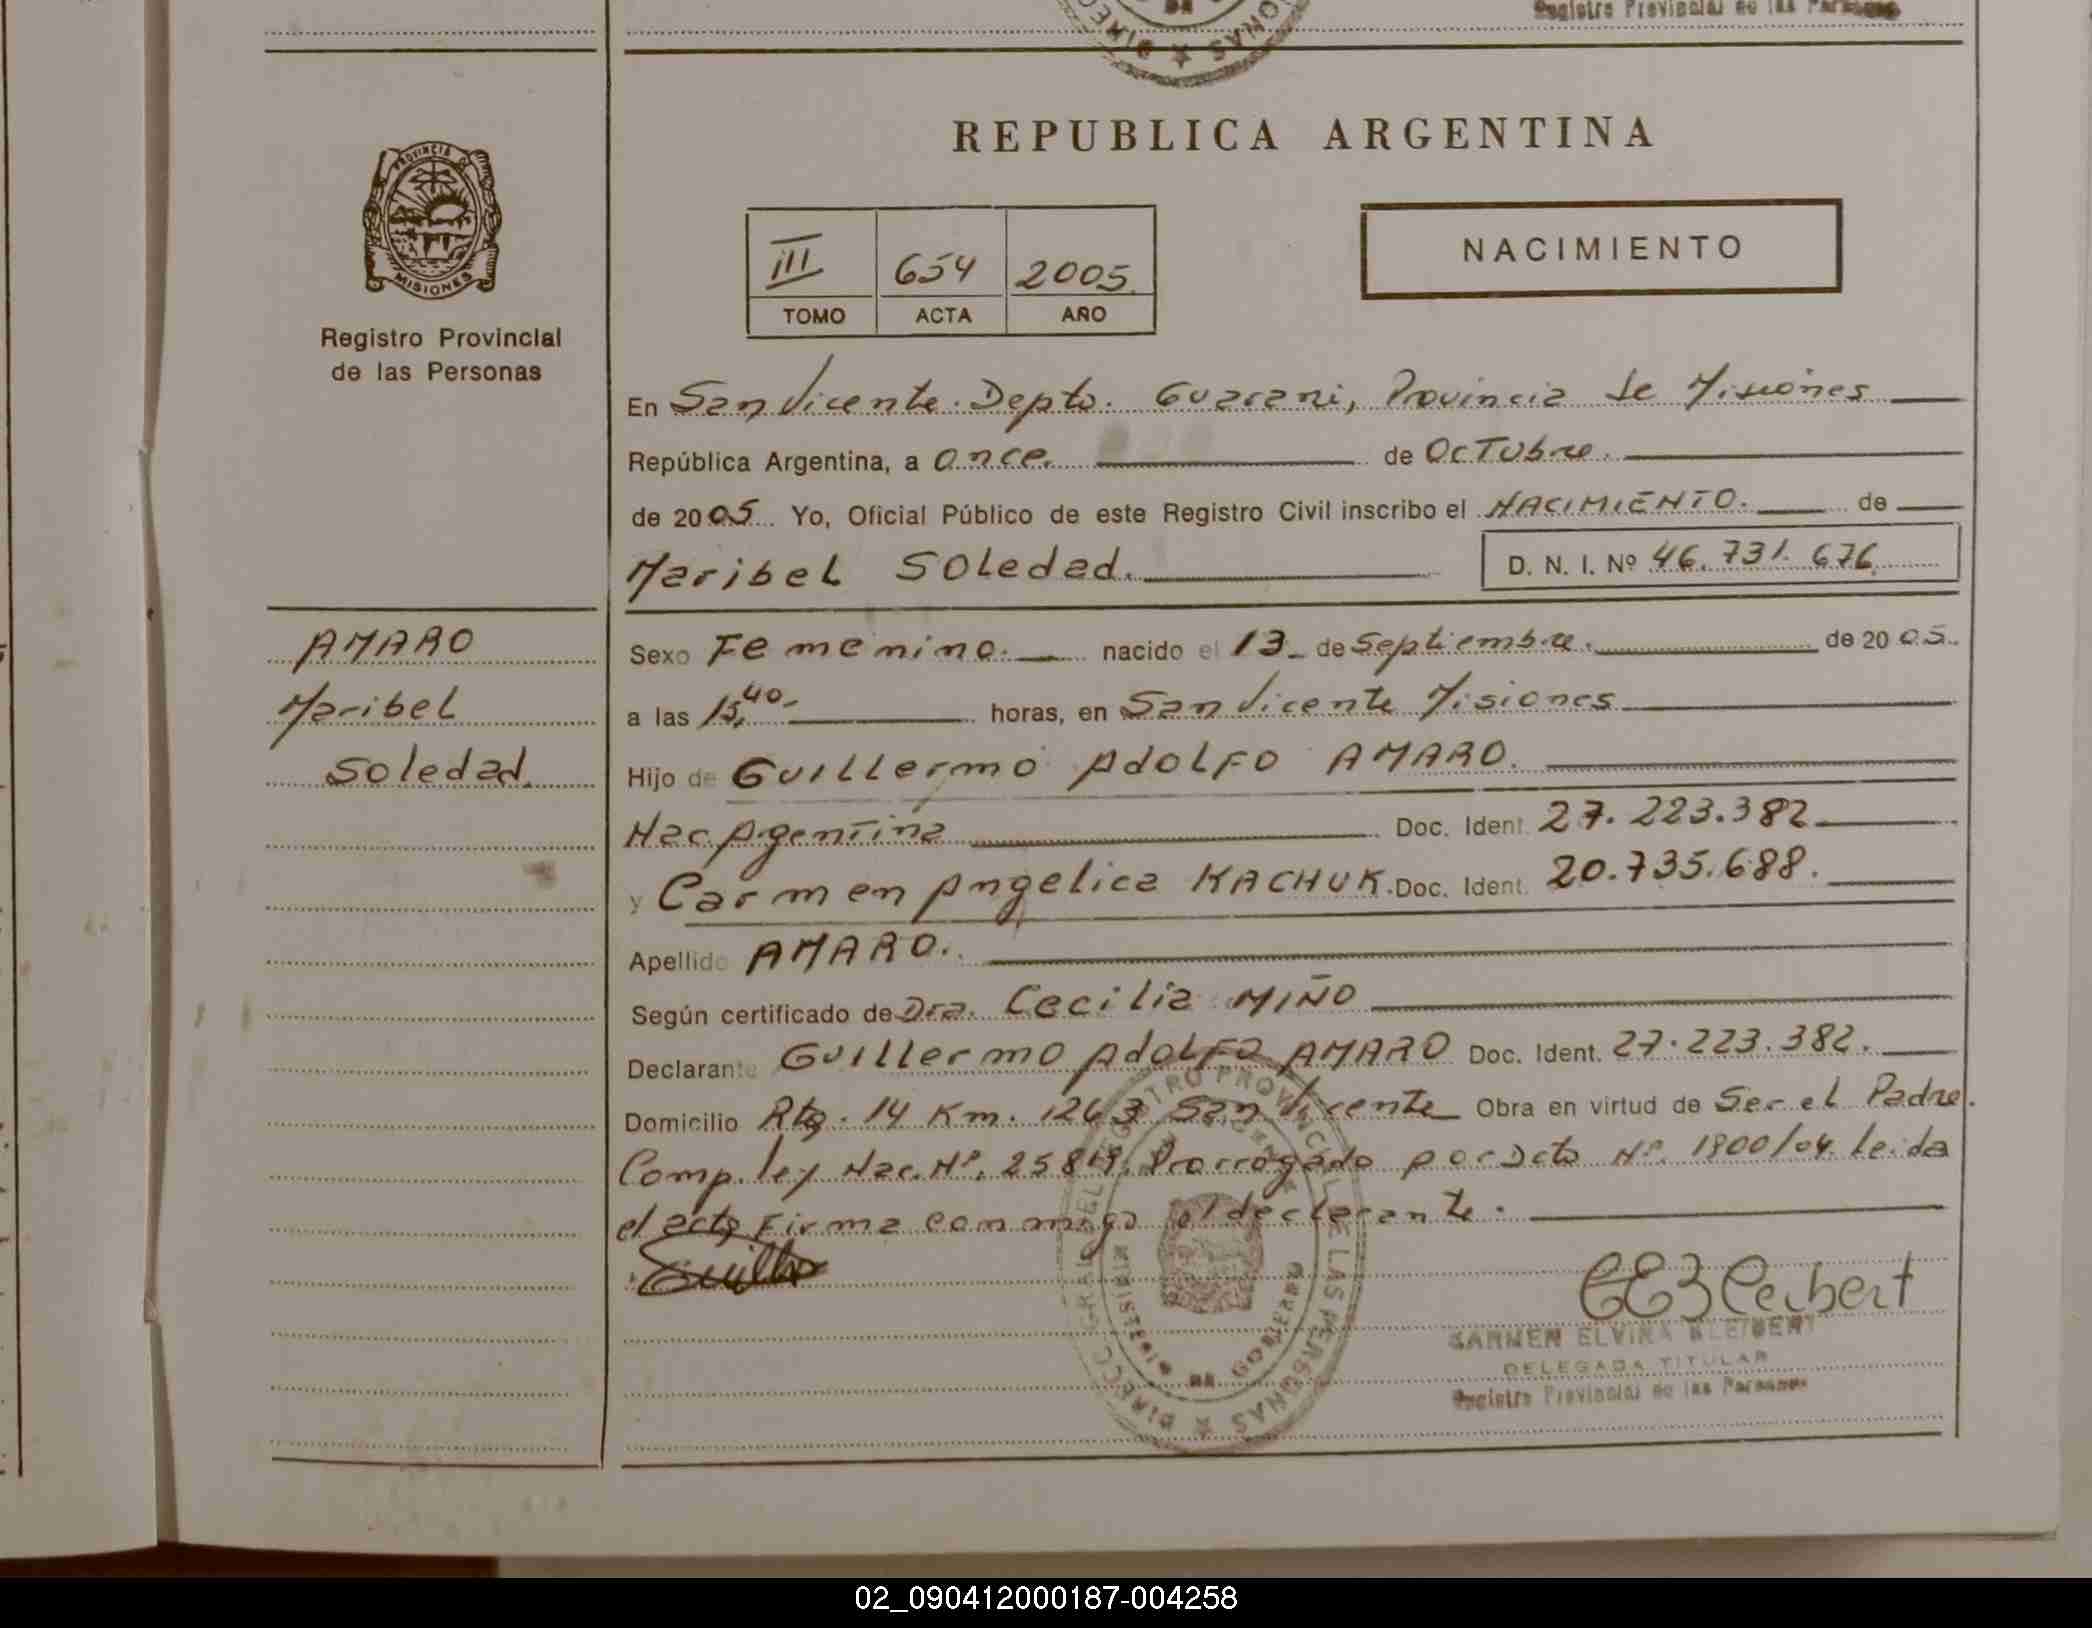 Registro Provincial de las Personas
REPUBLICA ARGENTINA
PROVINCIA DE
MISIONES
Registro Provincial
de las Personas
III 654 2005
TOMO ACTA AÑO
NACIMIENTO
En San Vicente. Depto. Guarani, Provincia de Misiones
República Argentina, a once. de Octubre.
de 2005 Yo, Oficial Público de este Registro Civil inscribo el NACIMIENTO. de
Maribel Soledad.
D. N. I. Nº 46.731.676
AMARO
Maribel
Soledad.
Sexo Femenino. nacido el 13 de Septiembre. de 2005.
a las 15,40- horas, en San Vicente Misiones
Hijo de Guillermo Adolfo AMARO.
Nac. Agentina Doc. Ident. 27.223.382
y Carmen Angelica KACHUK. Doc. Ident. 20.735.688.
Apellido AMARO.
Según certificado de Dra. Cecilia MIÑO
Declarante Guillermo Adolfo AMARO Doc. Ident. 27.223.382.
Domicilio Rta. 14 Km. 1263 San Vicente Obra en virtud de Ser el Padre.
Comp. ley Nac. Nº. 25819, Prorrogado por Dcto Nº. 1900/04. Leida
el acta Firma conmigo el declarante.
DIRECC. GRAL. DEL REGISTRO PROVINCIAL DE LAS PERSONAS
MINISTERIO DE GOBIERNO
CARMEN ELVIRA KLEIBERT
DELEGADA TITULAR
Registro Provincial de las Personas
02_090412000187-004258